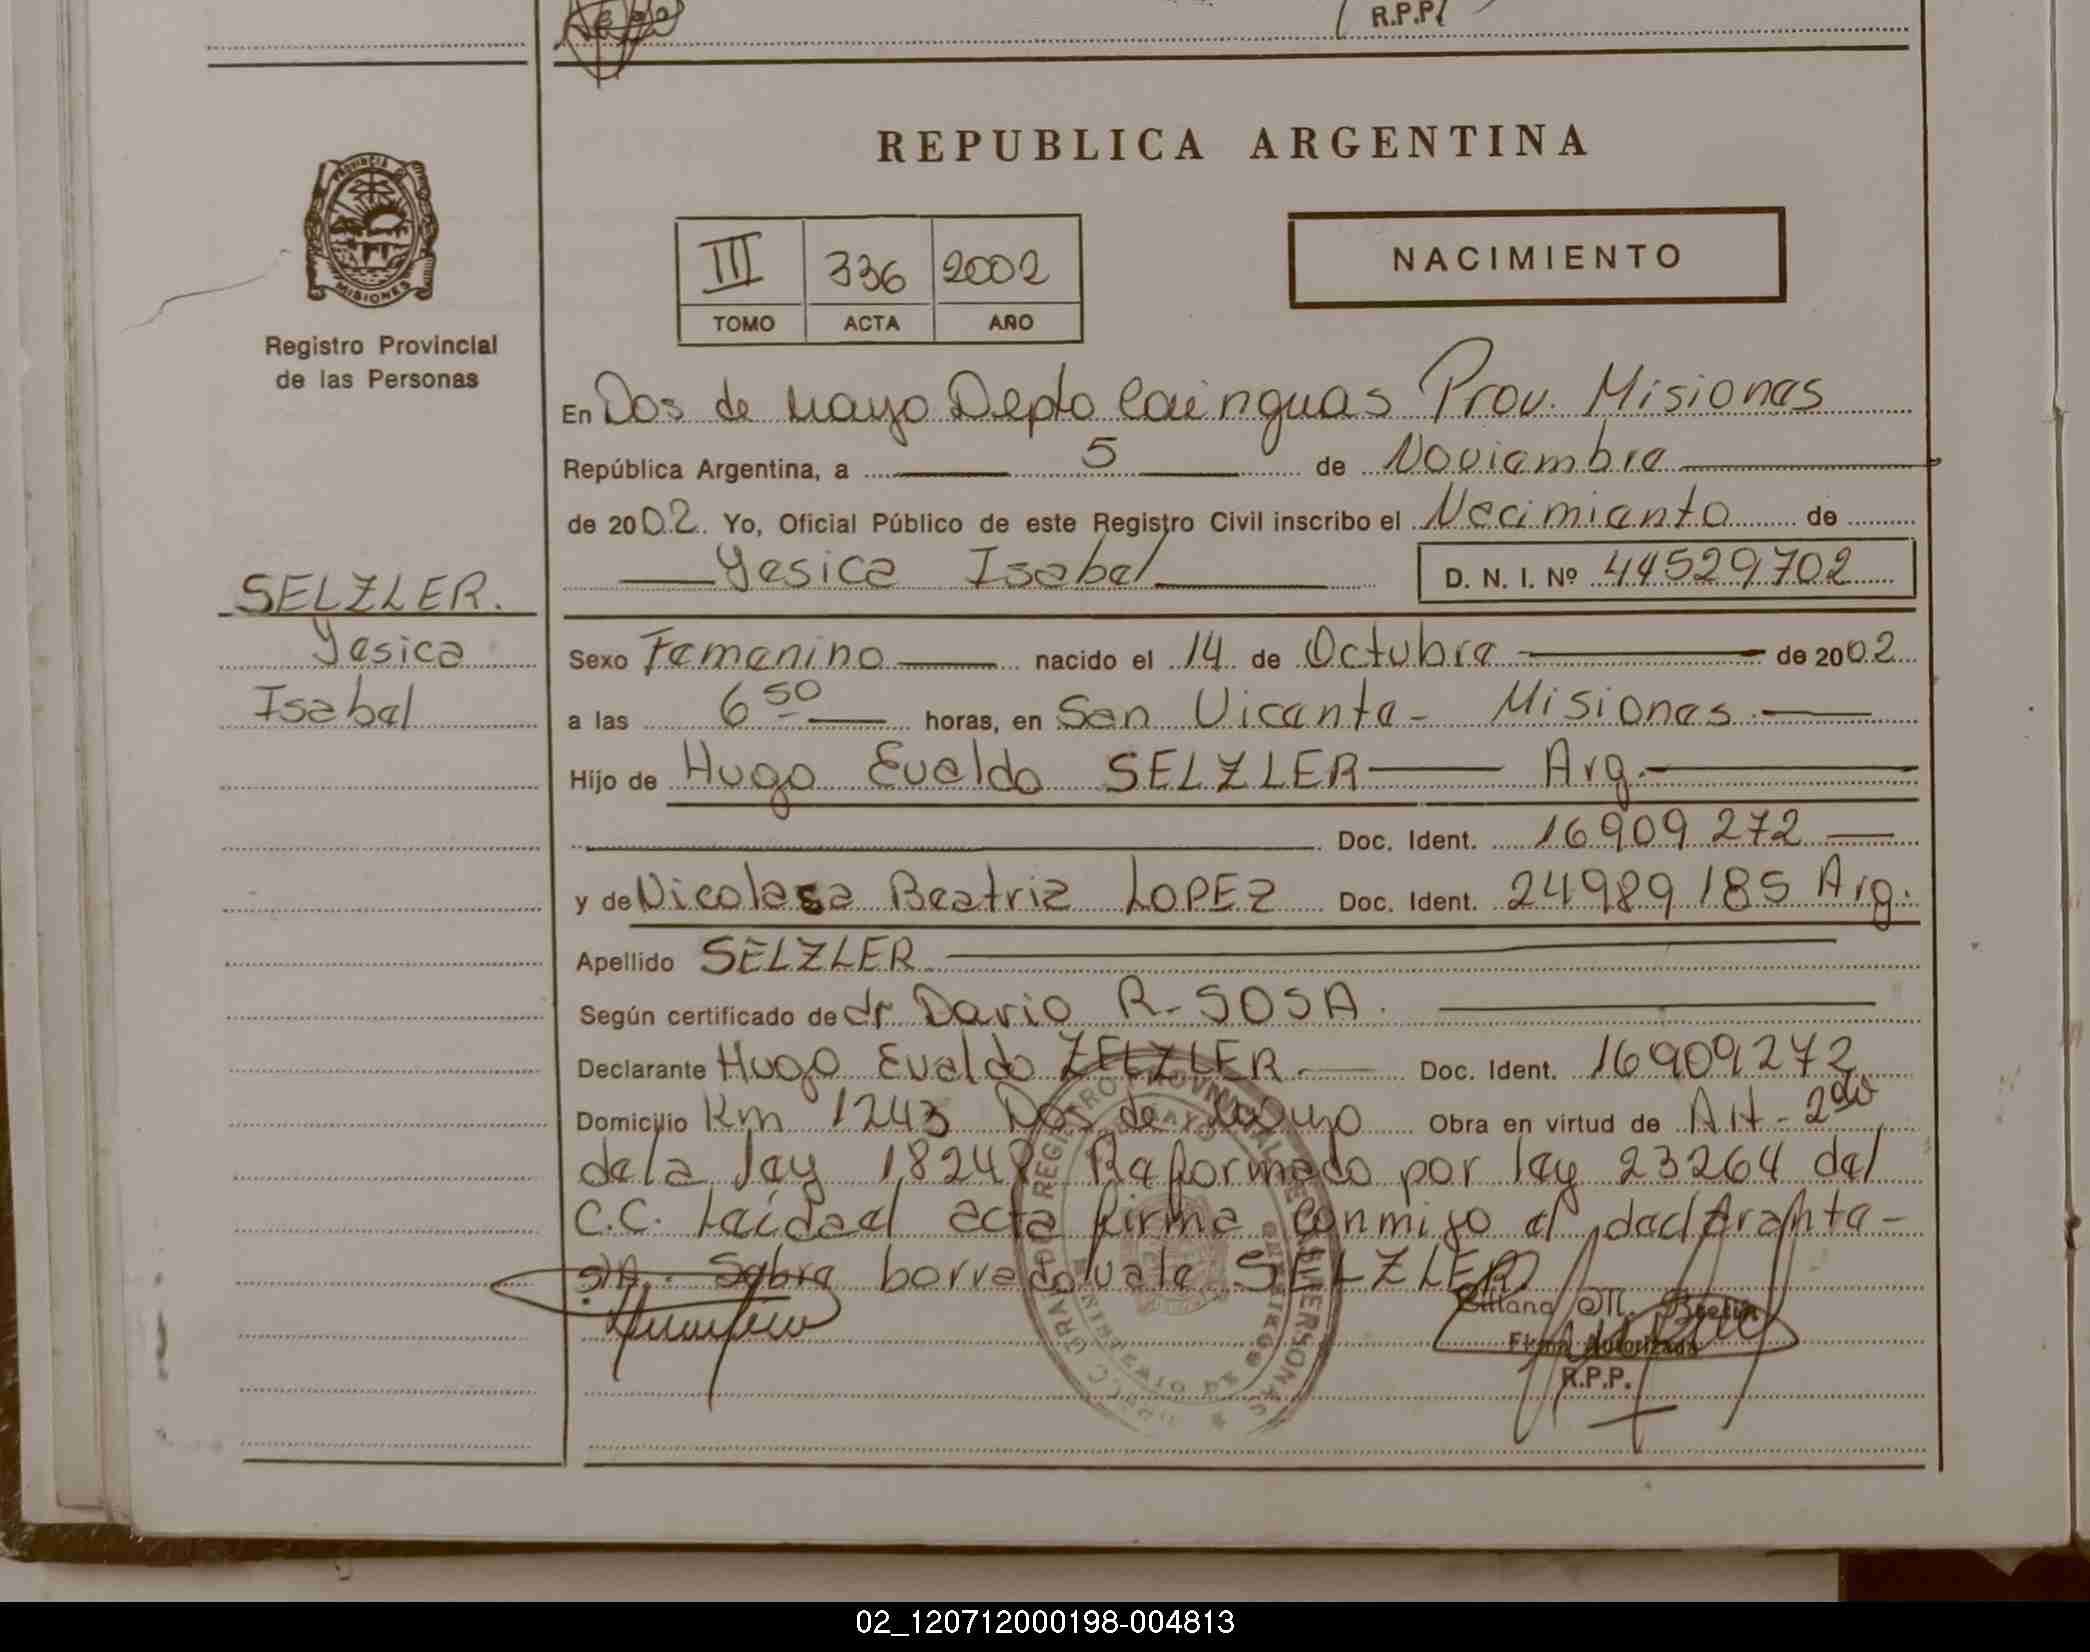 R.P.P.
REPUBLICA ARGENTINA
PROVINCIA DE
MISIONES
Registro Provincial
de las Personas
III 336 2002
TOMO ACTA AÑO
NACIMIENTO
En Dos de Mayo Depto Cainguas Prov. Misiones
República Argentina, a 5 de Noviembre
de 2002. Yo, Oficial Público de este Registro Civil inscribo el Nacimiento de
Yesica Isabel D. N. I. Nº 44529702
SELZLER.
Yesica
Isabel
Sexo Femenino nacido el 14 de Octubre de 2002
a las 6 50 horas, en San Vicente - Misiones.
Hijo de Hugo Evaldo SELZLER Arg.
Doc. Ident. 16909272
y de Nicolasa Beatriz LOPEZ Doc. Ident. 24989185 Arg.
Apellido SELZLER
Según certificado de dr Dario R. SOSA.
Declarante Hugo Evaldo ZELZLER Doc. Ident. 16909272
Domicilio Km 1243 Dos de Mayo Obra en virtud de Art. 2do
de la ley 18248 Reformado por ley 23264 del
C.C. Leida el acta firma conmigo el declarante -
Sobre borrado vale SELZLER
Firma Autorizada
R.P.P.
02_120712000198-004813